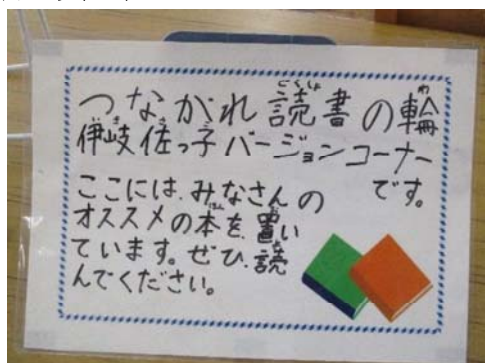 つながれ読書の輪
伊岐佐っ子バージョンコーナー
です。
ここには、みなさんの
オススメの本を、置い
ています。ぜひ、読
んでください。